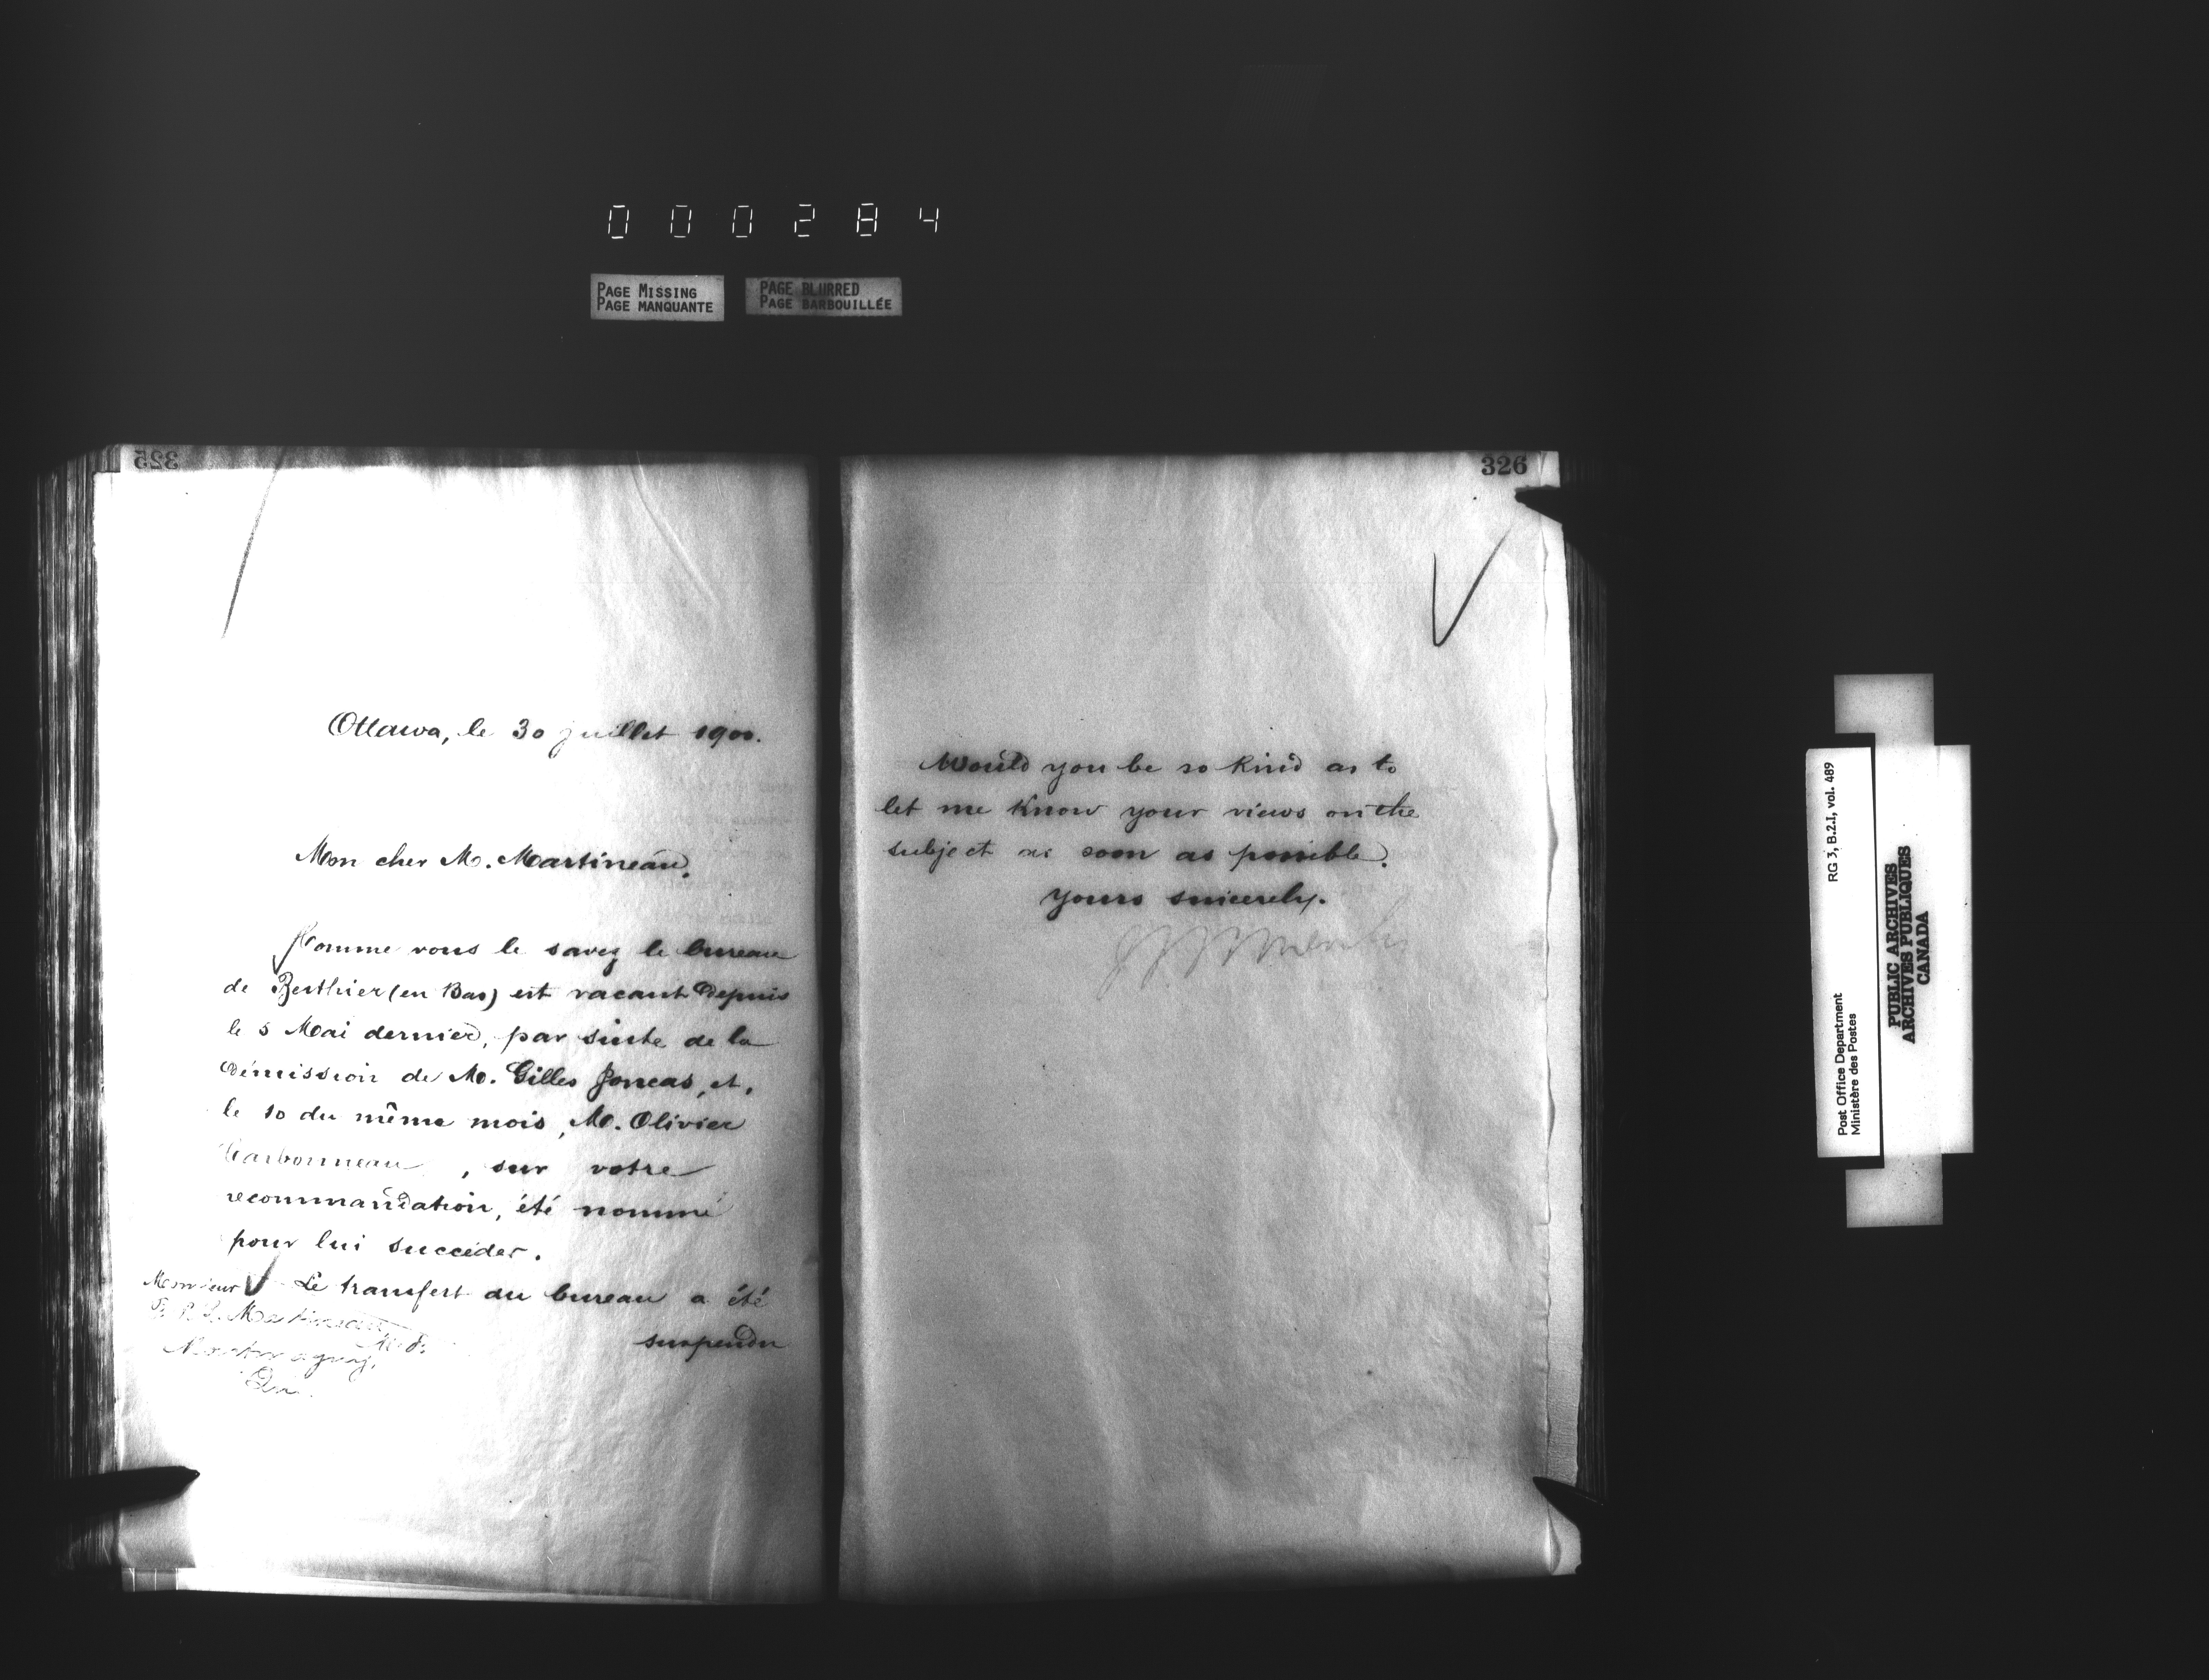 000284
PAGE MISSING
PAGE MANQUANTE
PAGE BLURRED
PAGE BARBOUILLÉE
325
Ottawa, le 30 juillet 1900.
Mon cher M. Martineau,
Comme vous le savez le bureau
de Berthier (en Bas) est vacant depuis
le 5 Mai dernier, par suite de la
démission de M. Gilles Joncas, et,
le 10 du même mois, M. Olivier
Carbonneau, sur votre
recommandation, été nommé
pour lui succéder.
Le transfert du bureau a été
suspendu
Monsieur
Martineau
M.P.
Montmagny,
326
Would you be so kind as to
let me know your views on the
subject as soon as possible.
Yours sincerely.
RG 3, B.2.I, vol. 489
Post Office Department
Ministère des Postes
PUBLIC ARCHIVES
ARCHIVES PUBLIQUES
CANADA